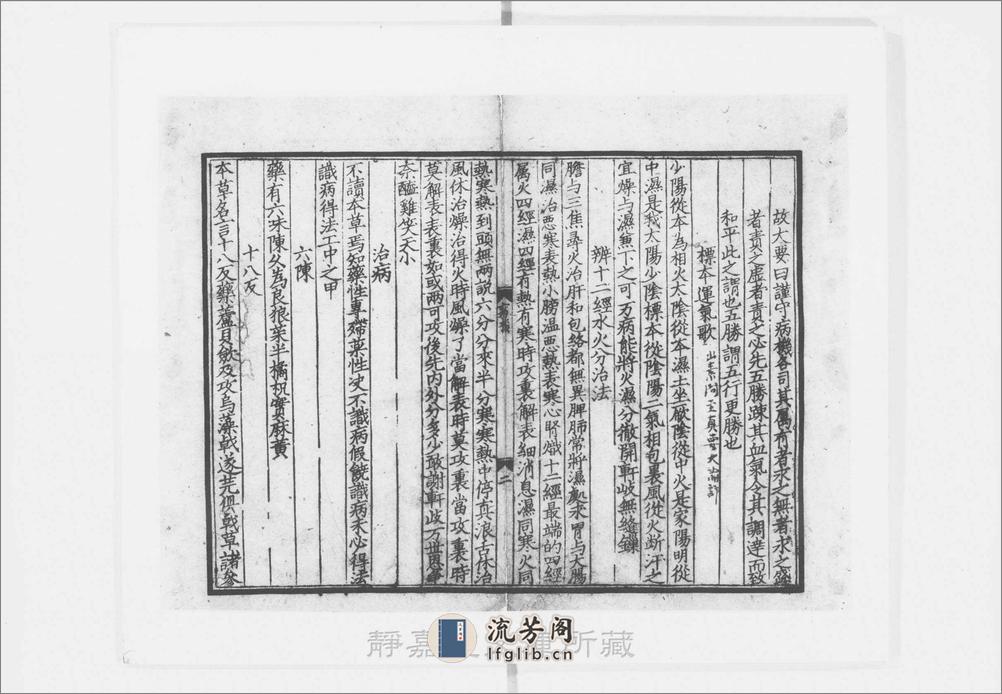 故大要曰謹守病機各司其屬有者求之無者求之盛
者責之虛者責之必先五勝踈其血氣令其調達而致
和平此之謂也五勝謂五行更勝也
標本運氣歌 出素問至真要大論訴
少陽從本為相火太陰從本濕土坐厥陰從中火是家陽明從
中濕是我太陽少陰標本從陰陽二氣相包裹風從火断汗之
宜燥与濕兼下之可万病能將火濕分徹開軒岐無縫鏁
辨十二經水火分治法
膽与三焦尋火治肝和包絡都無異脾肺常將濕處求胃与大腸
同濕治悪寒表熱小膀温悪熱表寒心腎熾十二經最端的四經
属火四經濕四經有熱有寒時攻裏解表細消息濕同寒火同
熱寒熱到頭無兩說六分分來半分寒寒熱中停真浪舌休治
風休治燥治得火時風燥了當解表時莫攻裏當攻裏時
莫解表表裏如或兩可攻後先內外分多少敢謝軒岐万世恩
柰醯雞笑天小
治病
不讀本草焉知藥性專
藥性决不識病假饒識病未必得法
識病得法工中之甲
六陳
藥有六味陳久為良狼茱半橘枳實麻黃
十八反
本草名言十八反藥蘆貝蘞及攻烏藻戟遂芫俱戰草諸參
二
流芳阁
lfglib.cn
靜嘉 所藏